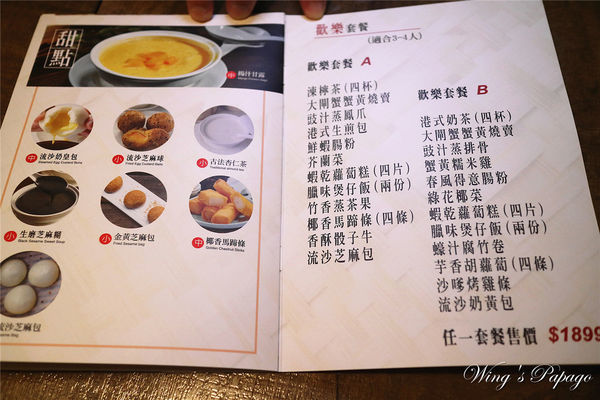 甜點
中 楊汁甘露
中 流沙奶皇包
Steamed Egg Custard Buns
小 流沙芝麻球
小 古法杏仁茶
小 生磨芝麻糊
Black Sesame Sweet Soup
小 金黃芝麻包
中 椰香馬蹄條
Golden Chestnut Sticks
流沙芝麻包
歡樂套餐
(適合3-4人)
歡樂套餐 A
凍檸茶(四杯)
大閘蟹蟹黃燒賣
豉汁蒸鳳爪
港式生煎包
鮮蝦腸粉
芥蘭菜
蝦乾蘿蔔糕(四片)
臘味煲仔飯(兩份)
竹香蒸茶果
椰香馬蹄條(四條)
香酥骰子牛
流沙芝麻包
歡樂套餐 B
港式奶茶(四杯)
大閘蟹蟹黃燒賣
豉汁蒸排骨
蟹黃糯米雞
春風得意腸粉
綠花椰菜
蝦乾蘿蔔糕(四片)
臘味煲仔飯(兩份)
蠔汁腐竹卷
芋香胡蘿蔔(四條)
沙嗲烤雞條
流沙奶黃包
任一套餐售價 $1899
Wing's Papago